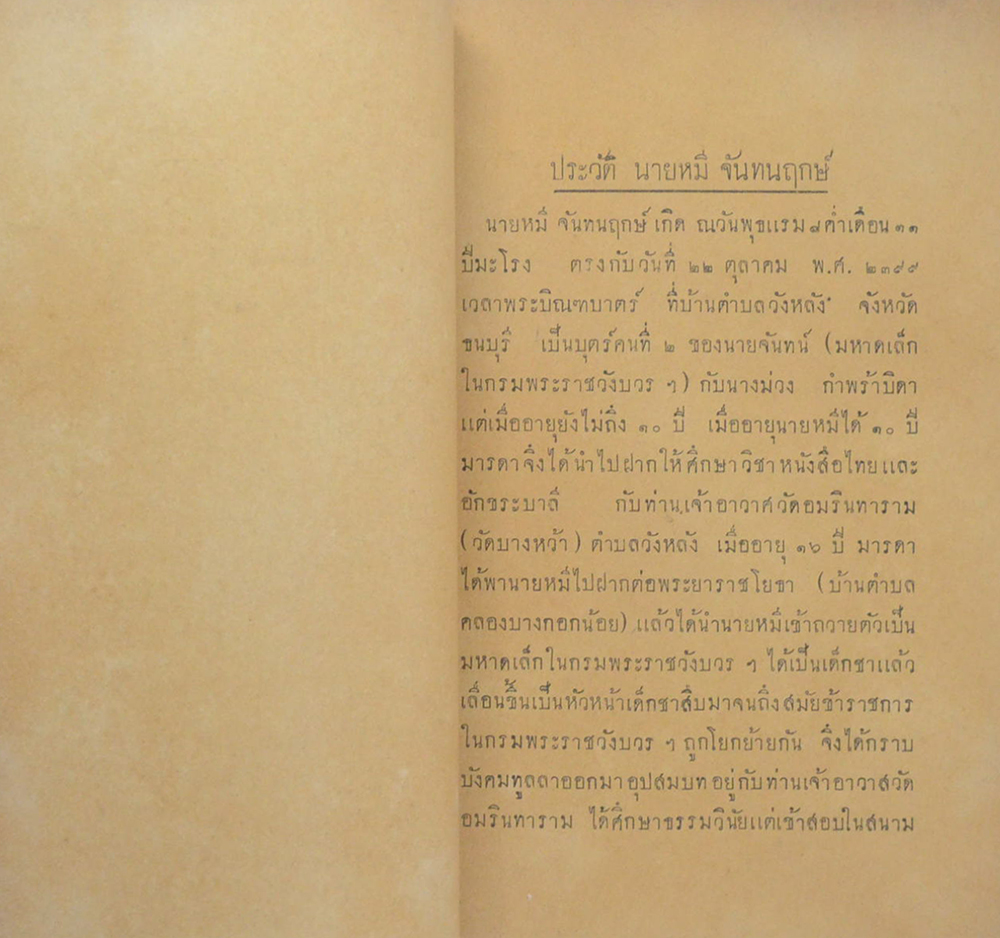 ประวัติ นายหมี จันทนฤกษ์
นายหมี จันทนฤกษ์ เกิด ณวันพุธแรม ๘ ค่ำเดือน ๑๑
ปีมะโรง ตรงกับวันที่ ๒๒ ตุลาคม พ.ศ. ๒๓๙๙
เวลาพระบิณฑบาตร์ ที่บ้านตำบลวังหลัง จังหวัด
ธนบุรี เป็นบุตร์คนที่ ๒ ของนายจันทน์ (มหาดเล็ก
ในกรมพระราชวังบวร ฯ) กับนางม่วง กำพร้าบิดา
แต่เมื่ออายุยังไม่ถึง ๑๐ ปี เมื่ออายุนายหมีได้ ๑๐ ปี
มารดาจึงได้นำไปฝากให้ศึกษาวิชาหนังสือไทยและ
อักขระบาลี กับท่านเจ้าอาวาศวัดอมรินทาราม
(วัดบางหว้า) ตำบลวังหลัง เมื่ออายุ ๑๖ ปี มารดา
ได้พานายหมีไปฝากต่อพระยาราชโยธา (บ้านตำบล
คลองบางกอกน้อย) แล้วได้นำนายหมีเข้าถวายตัวเป็น
มหาดเล็กในกรมพระราชวังบวร ฯ ได้เป็นเด็กชาแล้ว
เลื่อนขึ้นเป็นหัวหน้าเด็กชาสืบมาจนถึงสมัยข้าราชการ
ในกรมพระราชวังบวร ฯ ถูกโยกย้ายกัน จึงได้กราบ
บังคมทูลลาออกมาอุปสมบท อยู่กับท่านเจ้าอาวาสวัด
อมรินทาราม ได้ศึกษาธรรมวินัยแต่เข้าสอบในสนาม